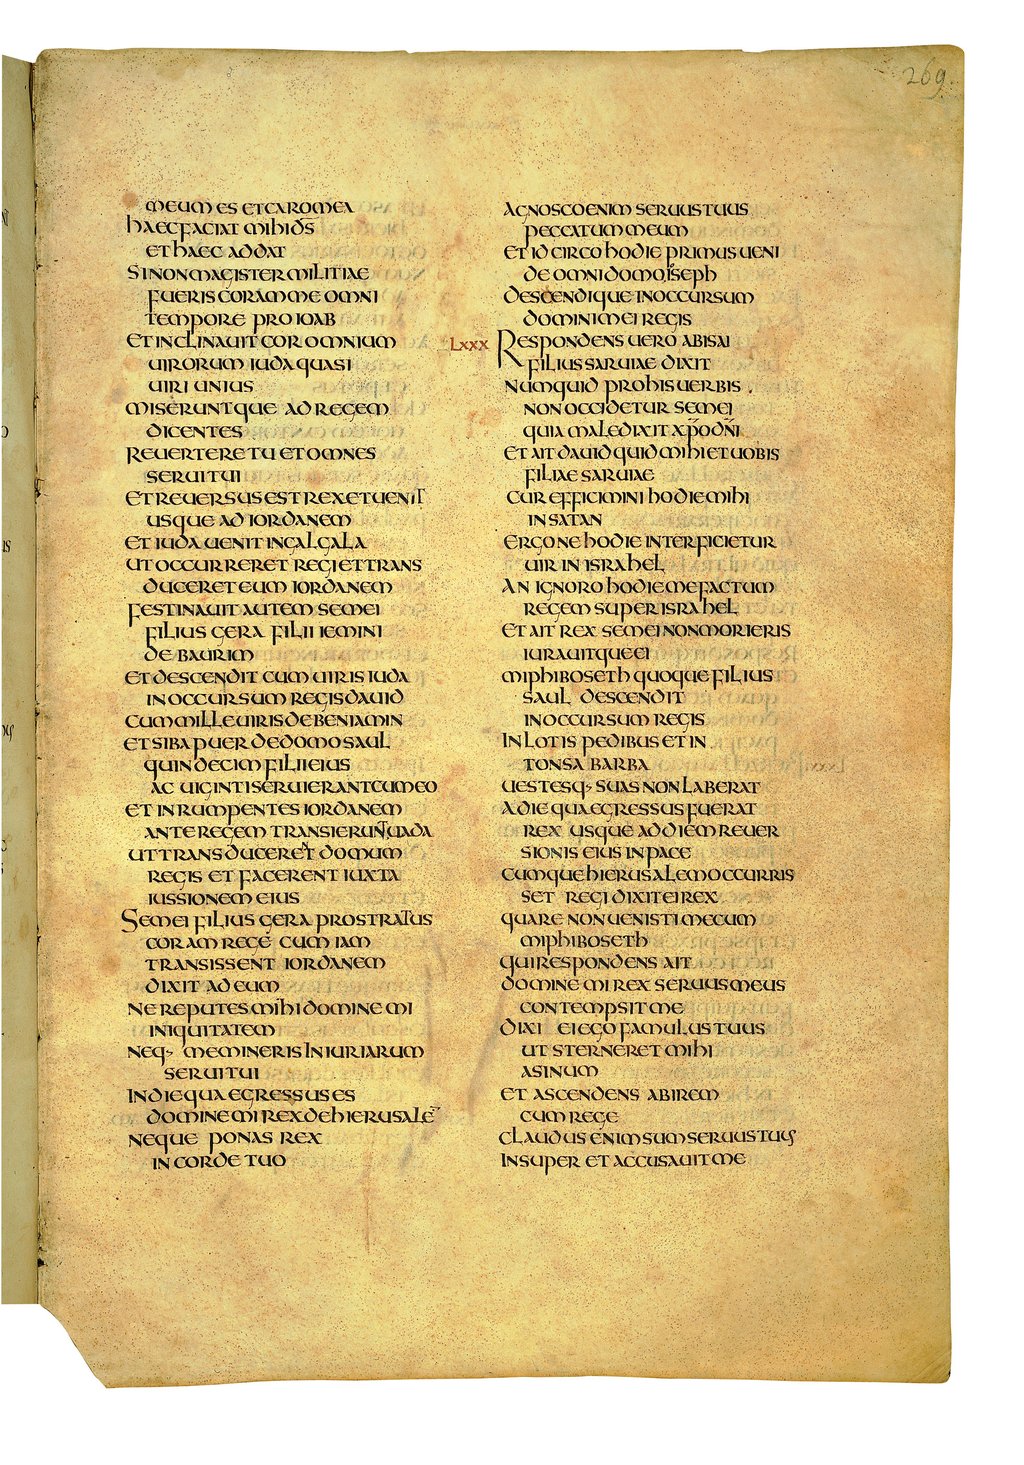 269.
meum es et caro mea
haec faciat mihi d̅s̅
et haec addat
si non magister militiae
fueris coram me omni
tempore pro ioab
et inclinavit cor omnium
uirorum iuda quasi
uiri unius
miserunt que ad regem
dicentes
reuertere tu et omnes
serui tui
et reuersus est rex et uenit
usque ad iordanem
et iuda uenit in galgala
ut occurreret regi et trans
duceret eum iordanem
festinauit autem semei
filius gera filii iemini
de baurim
et descendit cum uiris iuda
in occursum regis dauid
cum mille uiris de beniamin
et siba puer de domo saul
quindecim filii eius
ac uiginti serui erant cum eo
et inrumpentes iordanem
ante regem transierunt uada
ut transduceret domum
regis et facerent iuxta
iussionem eius
Semei filius gera prostratus
coram rege cum iam
transissent iordanem
dixit ad eum
ne reputes mihi domine mi
iniquitatem
neq· memineris iniuriarum
serui tui
in die qua egressus es
domine mi rex de hierusale̅
neque ponas rex
in corde tuo
agnosco enim seruus tuus
peccatum meum
et idcirco hodie primus ueni
de omni domo ioseph
descendique in occursum
domini mei regis
Lxxx Respondens uero abisai
filius saruiae dixit
numquid pro his uerbis
non occidetur semei
quia maledixit x̅p̅o d̅n̅i
et ait dauid quid mihi et uobis
filiae saruiae
cur efficimini hodie mihi
in satan
ergo ne hodie interficietur
uir in israhel
an ignoro hodie me factum
regem super israhel
et ait rex semei non morieris
iurauitque ei
miphiboseth quoque filius
saul descendit
in occursum regis
inlotis pedibus et in
tonsa barba
uestesq· suas non laberat
a die qua egressus fuerat
rex usque ad diem reuer
sionis eius in pace
cumque hierusalem occurris
set regi dixit ei rex
quare non uenisti mecum
miphiboseth
qui respondens ait
domine mi rex seruus meus
contempsit me
dixi ei ego famulus tuus
ut sterneret mihi
asinum
et ascendens abirem
cum rege
claudus enim sum seruus tuus
insuper et accusauit me